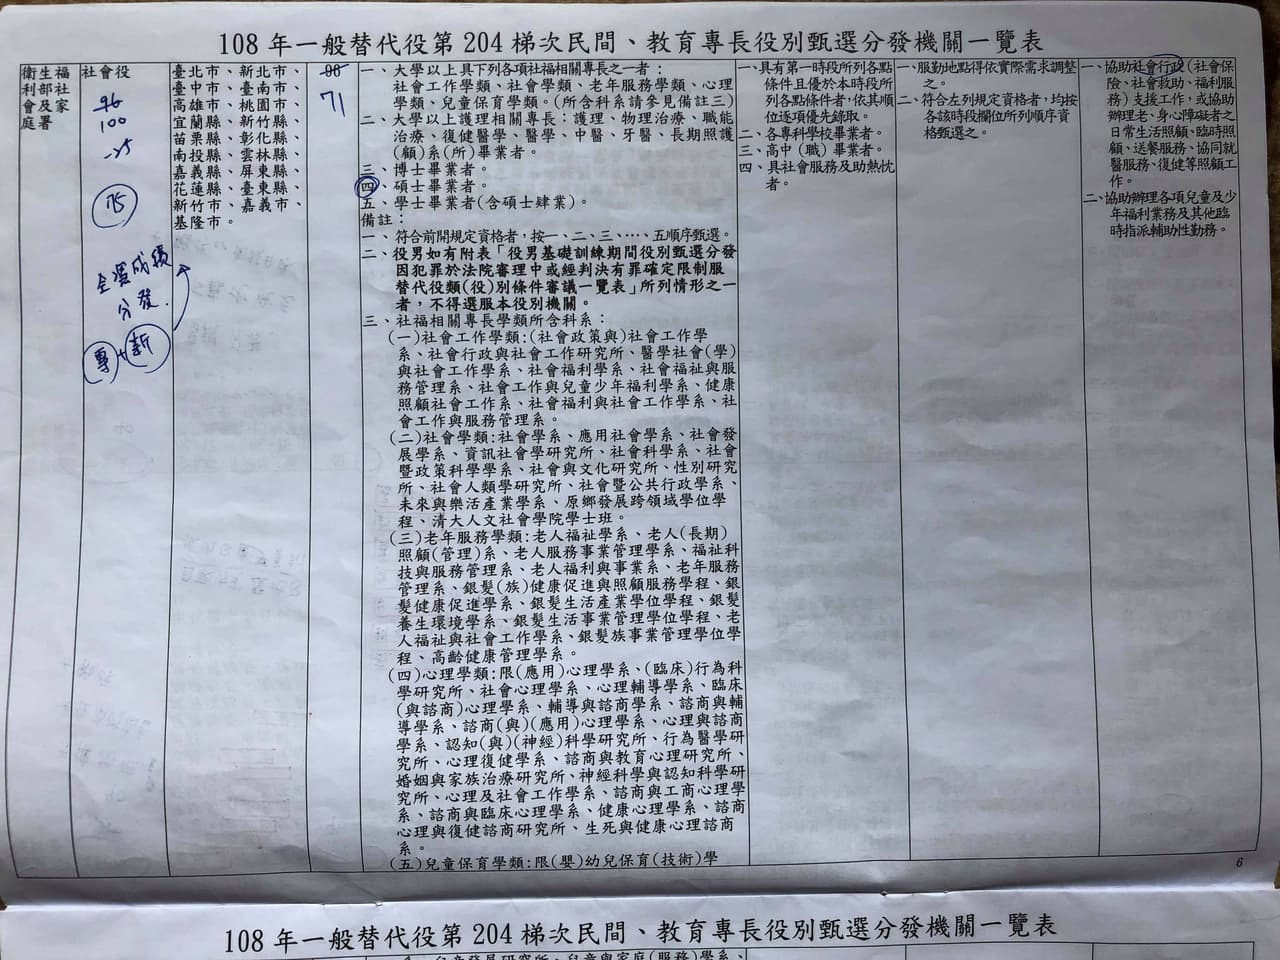 108 年一般替代役第 204 梯次民間、教育專長役別甄選分發機關一覽表
衛生福
利部社
會及家
庭署
社會役
96
100
-25
75
全選成績
分發.
專+新
臺北市、新北市、
臺中市、臺南市、
高雄市、桃園市、
宜蘭縣、新竹縣、
苗栗縣、彰化縣、
南投縣、雲林縣、
嘉義縣、屏東縣、
花蓮縣、臺東縣、
新竹市、嘉義市、
基隆市。
96
71
一、大學以上具下列各項社福相關專長之一者：
社會工作學類、社會學類、老年服務學類、心理
學類、兒童保育學類。(所含科系請參見備註三)
二、大學以上護理相關專長：護理、物理治療、職能
治療、復健醫學、醫學、中醫、牙醫、長期照護
(顧)系(所)畢業者。
三、博士畢業者。
四、碩士畢業者。
五、學士畢業者(含碩士肄業)。
備註：
一、符合前開規定資格者，按一、二、三、…、五順序甄選。
二、役男如有附表「役男基礎訓練期間役別甄選分發
因犯罪於法院審理中或經判決有罪確定限制服
替代役類(役)別條件審議一覽表」所列情形之一
者，不得選服本役別機關。
三、社福相關專長學類所含科系：
(一)社會工作學類:(社會政策與)社會工作學
系、社會行政與社會工作研究所、醫學社會(學)
與社會工作學系、社會福利學系、社會福祉與服
務管理系、社會工作與兒童少年福利學系、健康
照顧社會工作系、社會福利與社會工作學系、社
會工作與服務管理系。
(二)社會學類:社會學系、應用社會學系、社會發
展學系、資訊社會學研究所、社會科學系、社會
暨政策科學學系、社會與文化研究所、性別研究
所、社會人類學研究所、社會暨公共行政學系、
未來與樂活產業學系、原鄉發展跨領域學位學
程、清大人文社會學院學士班。
(三)老年服務學類:老人福祉學系、老人(長期)
照顧(管理)系、老人服務事業管理學系、福祉科
技與服務管理系、老人福利與事業系、老年服務
管理系、銀髮(族)健康促進與照顧服務學程、銀
髮健康促進學系、銀髮生活產業學位學程、銀髮
養生環境學系、銀髮生活事業管理學位學程、老
人福祉與社會工作學系、銀髮族事業管理學位學
程、高齡健康管理學系。
(四)心理學類:限(應用)心理學系、(臨床)行為科
學研究所、社會心理學系、心理輔導學系、臨床
(與諮商)心理學系、輔導與諮商學系、諮商與輔
導學系、諮商(與)(應用)心理學系、心理與諮商
學系、認知(與)(神經)科學研究所、行為醫學研
究所、心理復健學系、諮商與教育心理研究所、
婚姻與家族治療研究所、神經科學與認知科學研
究所、心理及社會工作學系、諮商與工商心理學
系、諮商與臨床心理學系、健康心理學系、諮商
心理與復健諮商研究所、生死與健康心理諮商
系。
(五)兒童保育學類:限(嬰)幼兒保育(技術)學
一、具有第一時段所列各點
條件且優於本時段所
列各點條件者，依其順
位逐項優先錄取。
二、各專科學校畢業者。
三、高中(職)畢業者。
四、具社會服務及助熱忱
者。
一、服勤地點得依實際需求調整
之。
二、符合左列規定資格者，均按
各該時段欄位所列順序資
格甄選之。
一、協助社會行政(社會保
險、社會救助、福利服
務)支援工作，或協助
辦理老、身心障礙者之
日常生活照顧、臨時照
顧、送餐服務、協同就
醫服務、復健等照顧工
作。
二、協助辦理各項兒童及少
年福利業務及其他臨
時指派輔助性勤務。
6
108 年一般替代役第 204 梯次民間、教育專長役別甄選分發機關一覽表